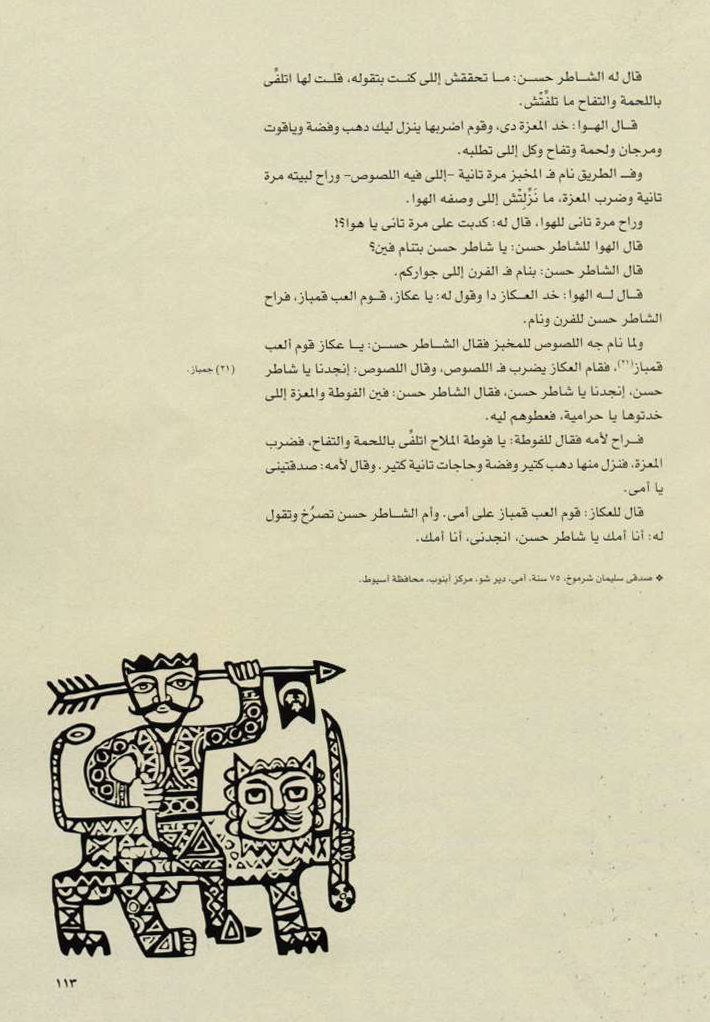 قال له الشاطر حسن: ما تحققش إللى كنت بتقوله، قلت لها اتلفِّى
باللحمة والتفاح ما تلفِّتْش.
قال الهوا: خد المعزة دى، وقوم اضربها ينزل ليك دهب وفضة وياقوت
ومرجان ولحمة وتفاح وكل إللى تطلبه.
وفـ الطريق نام فـ المخبز مرة تانية -إللى فيه اللصوص- وراح لبيته مرة
تانية وضرب المعزة، ما نَزِّلِتْش إللى وصفه الهوا.
وراح مرة تانى للهوا، قال له: كدبت على مرة تانى يا هوا؟!
قال الهوا للشاطر حسن: يا شاطر حسن بتنام فين؟
قال الشاطر حسن: بنام فـ الفرن إللى جواركم.
قال له الهوا: خد العكاز دا وقول له: يا عكاز، قوم العب قمباز، فراح
الشاطر حسن للفرن ونام.
ولما نام جه اللصوص للمخبز فقال الشاطر حسن: يا عكاز قوم ألعب
قمباز(٢١)، فقام العكاز يضرب فـ اللصوص، وقال اللصوص: إنجدنا يا شاطر
(٢١) جمباز.
حسن، إنجدنا يا شاطر حسن، فقال الشاطر حسن: فين الفوطة والمعزة إللى
خدتوها يا حرامية، فعطوهم ليه.
فراح لأمه فقال للفوطة: يا فوطة الملاح اتلفِّى باللحمة والتفاح، فضرب
المعزة، فنزل منها دهب كتير وفضة وحاجات تانية كتير. وقال لأمه: صدقتينى
يا أمى.
قال للعكاز: قوم العب قمباز على أمى. وأم الشاطر حسن تصرُخ وتقول
له: أنا أمك يا شاطر حسن، انجدنى، أنا أمك.
❖ صدقى سليمان شرموخ، ٧٥ سنة، أمى، دير شو، مركز أبنوب، محافظة أسيوط.
١١٣